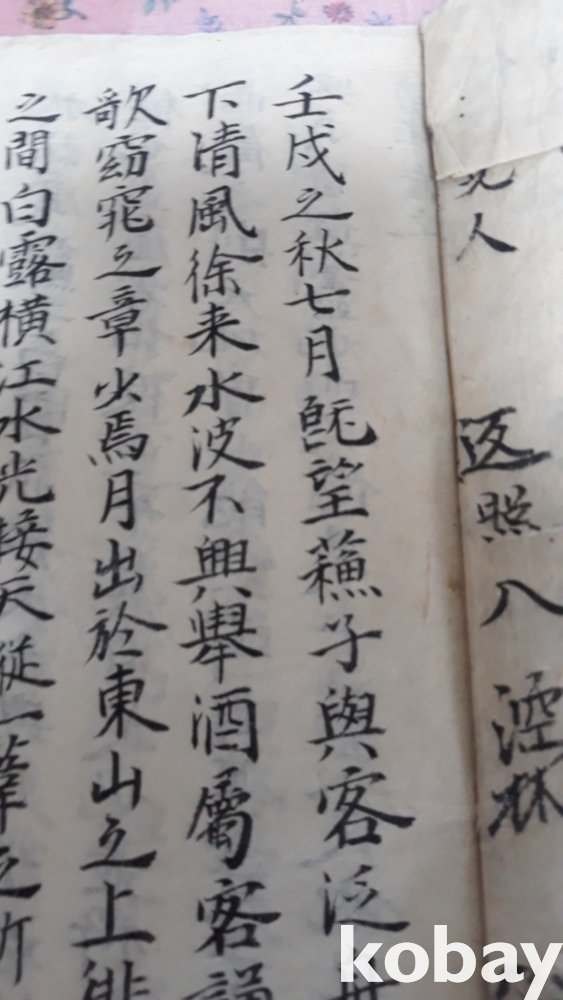 人
返照入深林
壬戌之秋七月既望蘓子與客泛
下清風徐来水波不興舉酒屬客誦
歌窈窕之章少焉月出於東山之上徘
之間白露橫江水光接天縱一葦之所
kobay